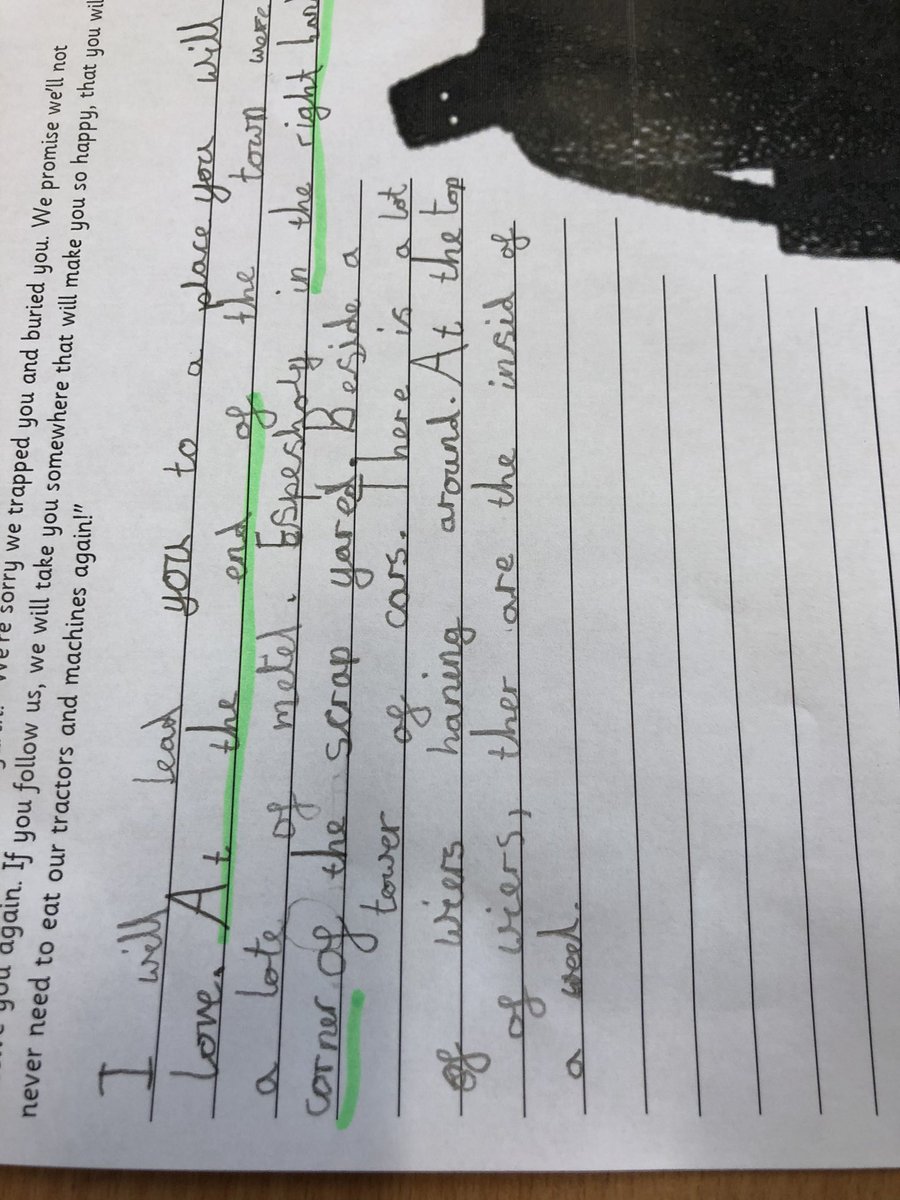 sorry we trapped you and buried you. We promise we'll not
you again. If you follow us, we will take you somewhere that will make you so happy, that you wil
never need to eat our tractors and machines again!”
I will lead you to a place you will
love. At the end of the town were
a lote of metel. Espesholy in the right han
corner of the scrap yared. Beside a
tower of cars. There is a lot
of wiers haning around. At the top
of wiers, ther are the insid of
a